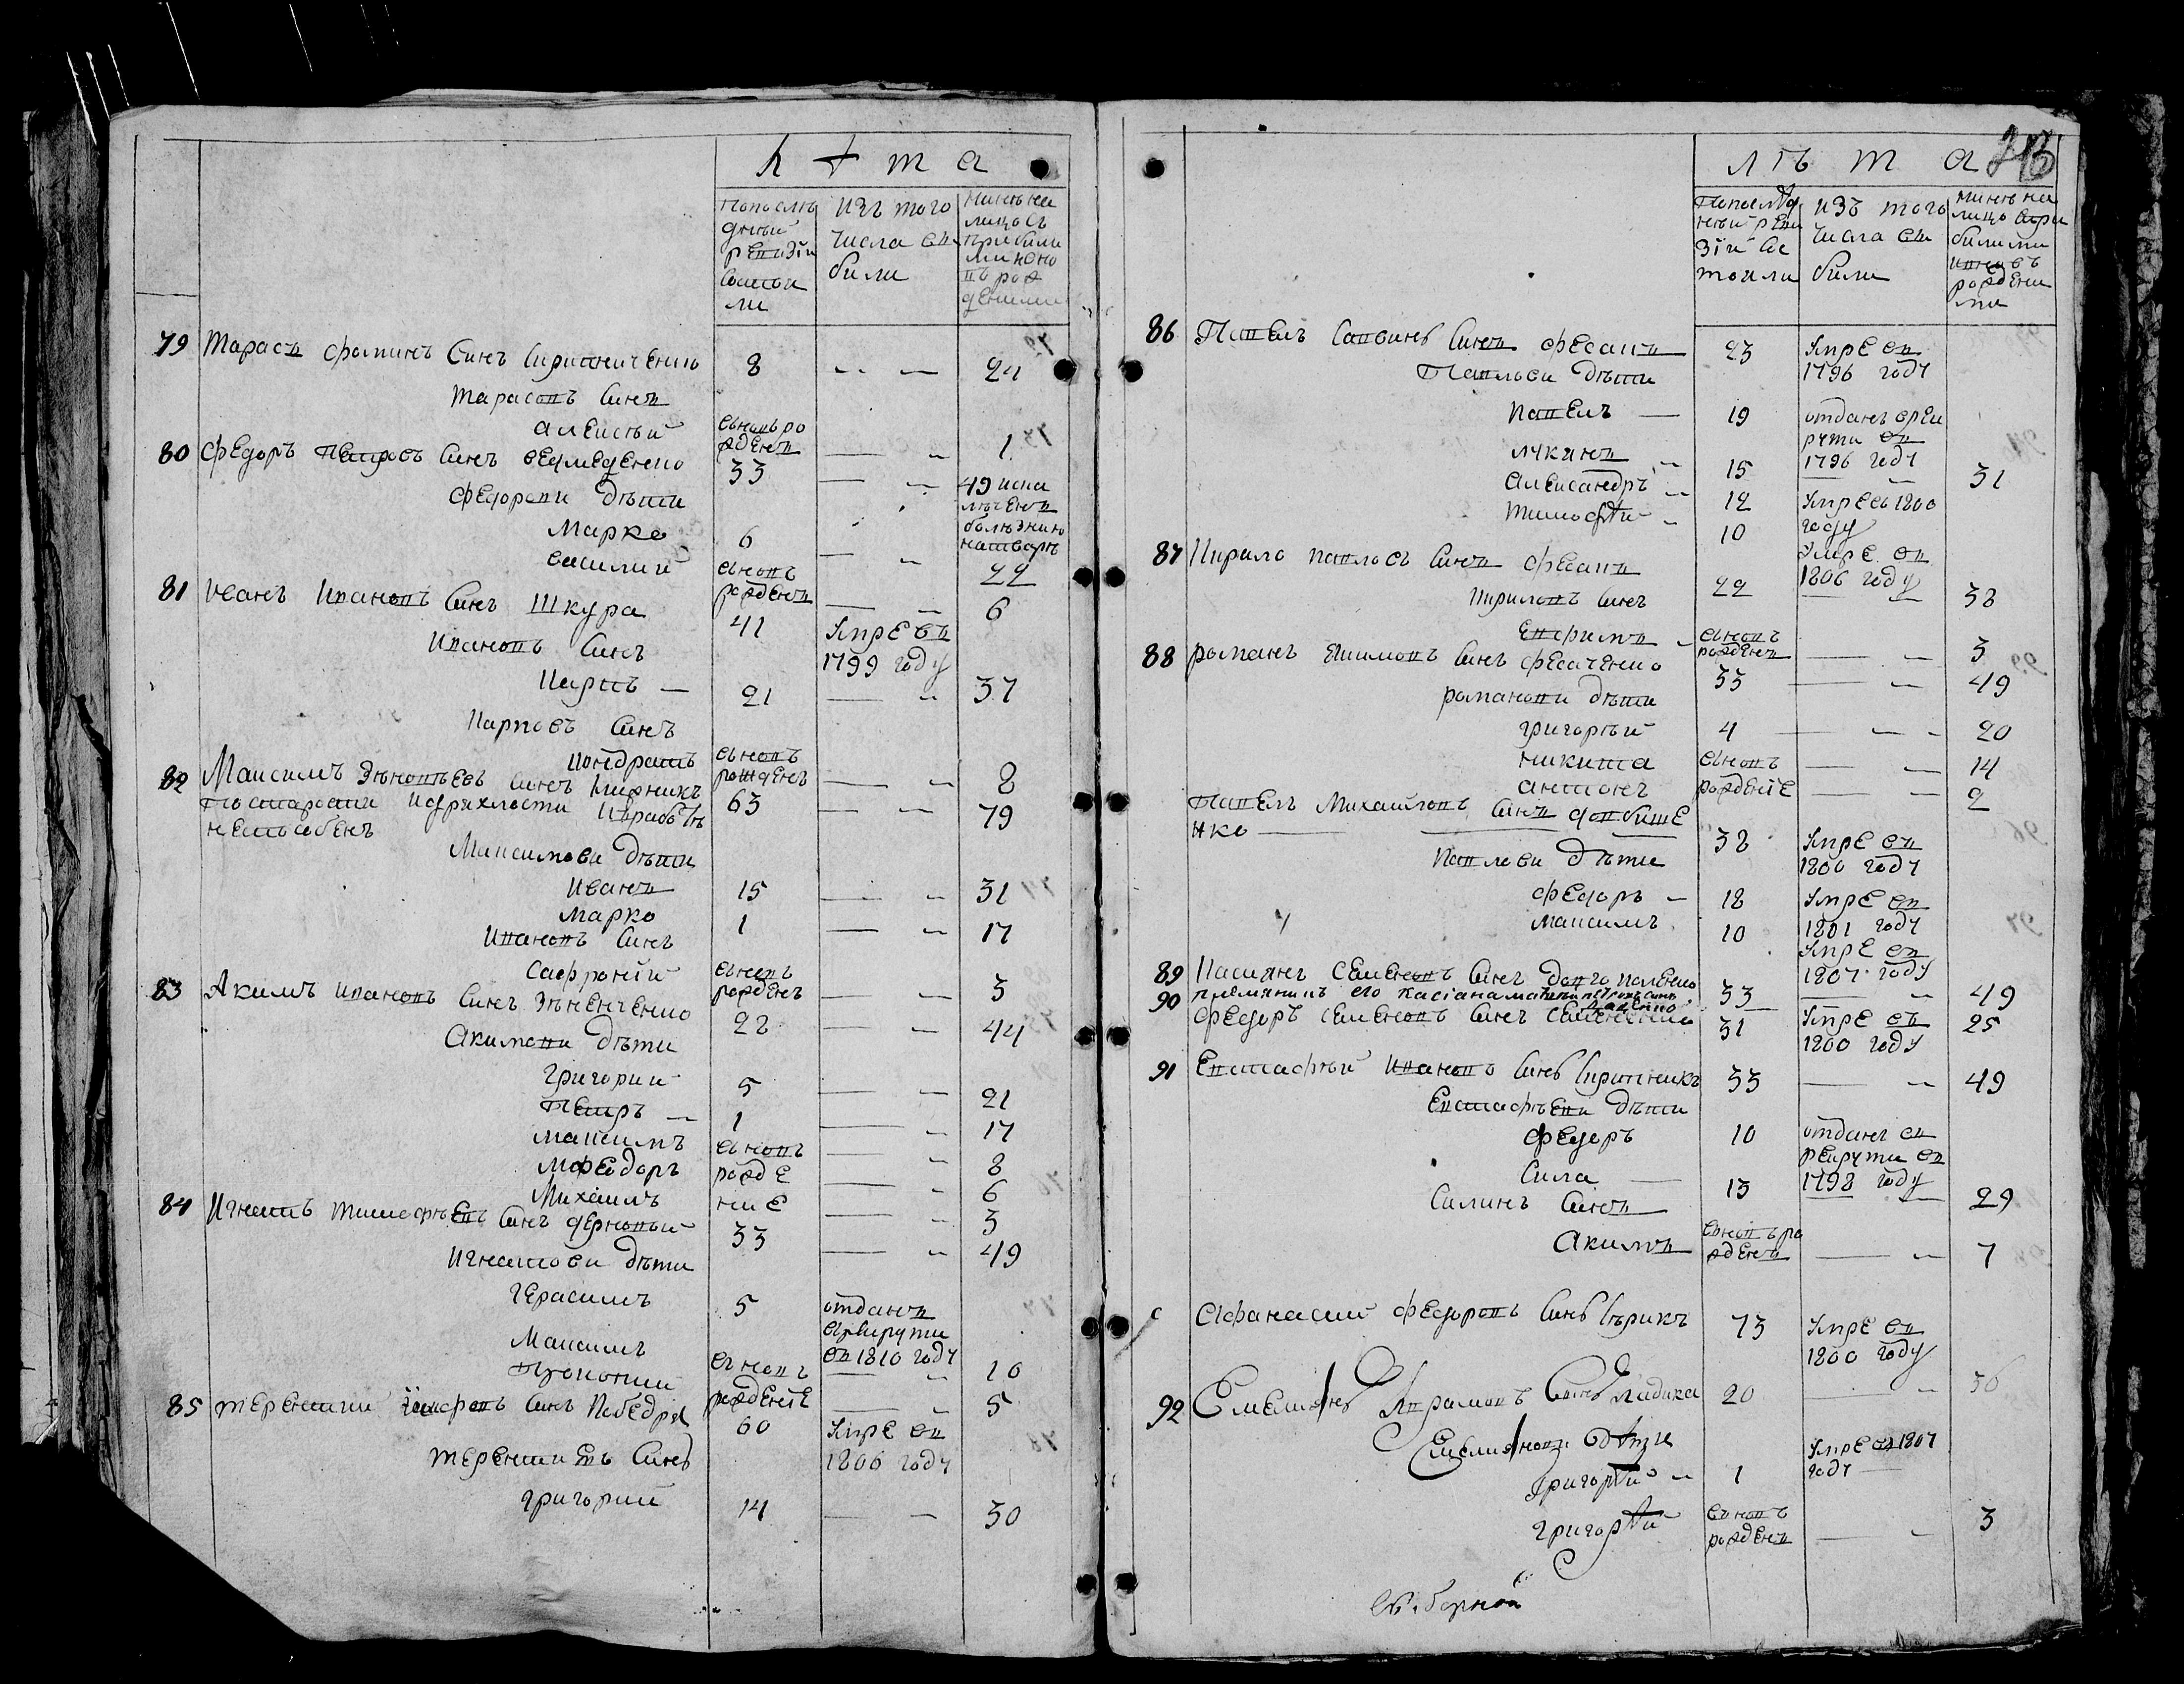 л ѣ т а
По последней ревизіи состояли
изъ того числа выбыли
ныне на лицо съ прибылыми и вновь рожденными
79 Тарасъ Фоминъ синъ Скрипниченко 8 — 24
Тарасовъ синъ
Алексѣй вновь рожденъ — 1
80 Федоръ Петровъ синъ Ведмеденко 33 — 49
Федорови дѣти
Марко 6 — 22
василий вновъ рожденъ — 6
81 Иванъ Ивановъ синъ Шкура 41 Умре въ 1799 году
Ивановъ синъ
Карпъ — 21 — 37
Карповъ синъ
Кондратъ вновъ рожденъ — 8
82 Максимъ синъ 63 — 79
по старости и дряхлости
неспособенъ
Максимови дѣти
Иванъ 15 — 31
Марко 1 — 17
Ивановъ синъ
Сафроній вновъ рожденъ — 3
83 Акимъ Ивановъ синъ Зѣненченко 28 — 44
Акимови дѣти
Григорий 5 — 21
Петръ — 1 — 17
Максимъ вновъ — 8
Феодоръ рожде — 6
Михаилъ ние — 3
84 Игнатъ Тимофѣевъ синъ 33 — 49
Игнатови дѣти
Герасимъ 5 отданъ в рекрути въ 1810 году
Максимъ вновъ — 10
Прокопий рожденіе — 5
85 Терентий синъ 60 Умре въ 1806 году
Терентиевъ синъ
Григорий 14 — 30
л ѣ т а
По последней ревизіи состояли
изъ того числа выбыли
ныне на лицо с прибылими и вновъ рожденими
86 Павелъ Саввинъ синъ Фесакъ 23 Умре въ 1796 году
Павлови дѣти
Павелъ — 19 отданъ в рекрути въ 1796 году
Лукианъ 15 — 31
Александръ 12 Умре въ 1800 году
Тимофѣй 10 Умре въ 1806 году
87 Кирило Павловъ синъ Фесакъ 22 — 38
Кириловъ синъ
Евфимъ вновъ рожденъ — 3
88 Романъ синъ Фесаченко 33 — 49
Романови дѣти
Григорѣй 4 — 20
Никита вновъ — 14
Антонъ рожденіе — 2
Павелъ Михайловъ синъ Довбише
нко — 38 Умре въ 1800 году
Павлови дѣти
Федоръ — 18 Умре въ 1801 году
Максимъ 10 Умре въ 1807 году
89 Касиянъ Семеновъ синъ 33 — 49
племяникъ его Касіана 25
90 Федоръ Семеновъ синъ Семененко 31 Умре въ 1800 году
91 Евстафѣй Ивановъ синъ Скрипникъ 33 — 49
Евстафѣеви дѣти
Федоръ 10 отданъ въ рекрути въ 1798 году
Сила — 13 — 29
Силинъ синъ
Акимъ вновъ рожденъ — 7
Афанасий Федоровъ синъ 73 Умре въ 1800 году
92 Емелянъ Аврамовъ синъ 20 — 36
Емелянови дѣти
Григорѣй — 1 Умре въ 1807 году
Григорѣй вновъ рожденъ — 3